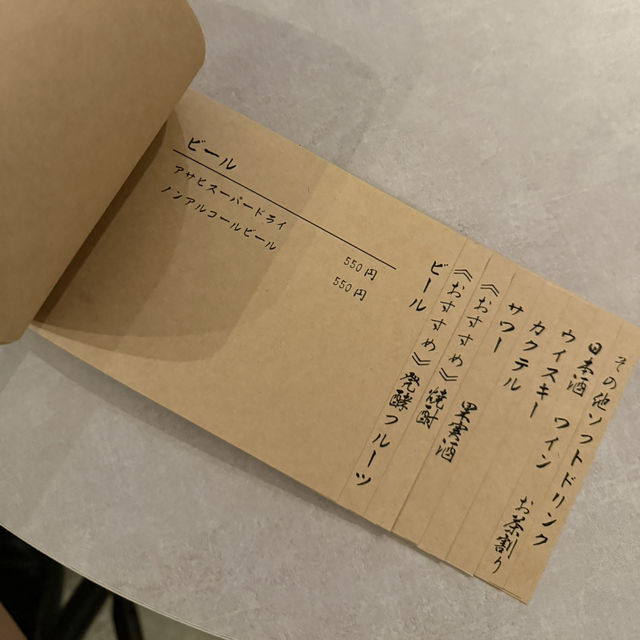 ビール
アサヒスーパードライ 550円
ノンアルコールビール 550円
ビール
《おすすめ》発酵フルーツ
《おすすめ》焼酎
サワー 果実酒
カクテル
ウイスキー
日本酒 ワイン お茶割り
その他ソフトドリンク